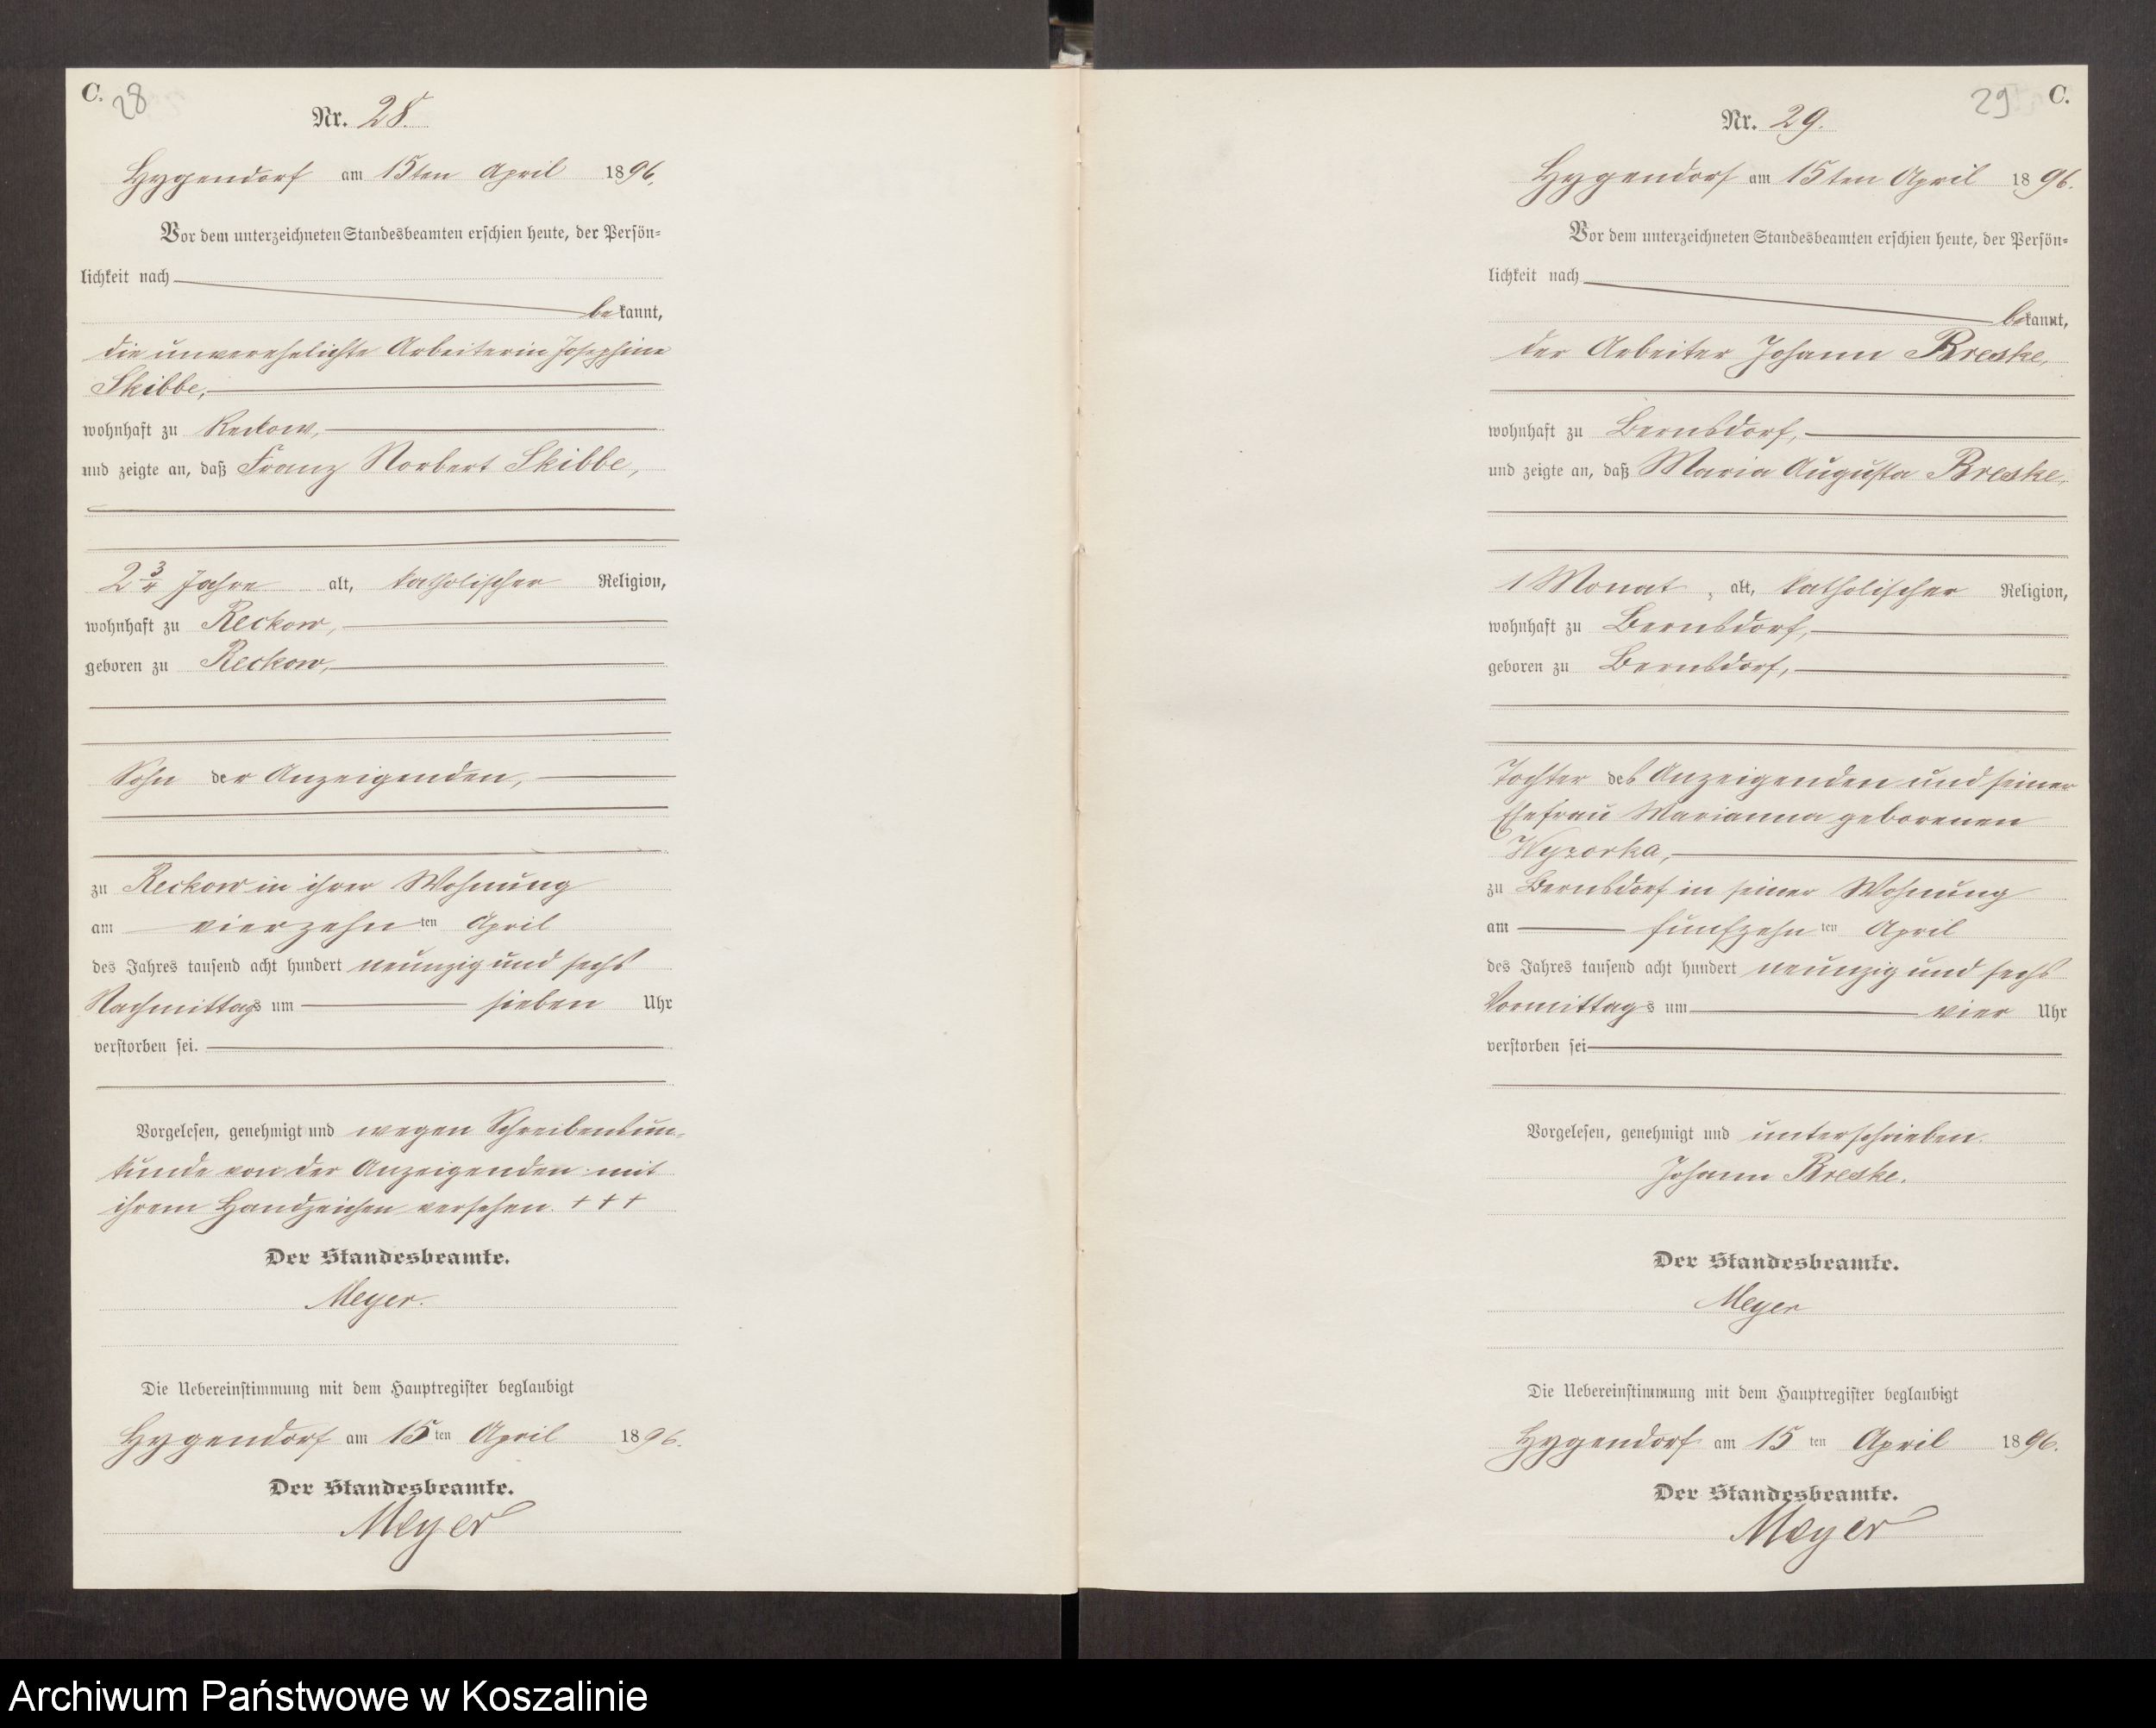 C. 28
Nr. 28.
Hygendorf am 15ten April 1896.
Vor dem unterzeichneten Standesbeamten erschien heute, der Persön-
lichkeit nach
bekannt,
die unverehelichte Arbeiterin Josephine
Skibbe,
wohnhaft zu Reckow,
und zeigte an, daß Franz Norbert Skibbe,
2 3/4 Jahre alt, katholischer Religion,
wohnhaft zu Reckow,
geboren zu Reckow,
Sohn der Anzeigenden,
zu Reckow in ihrer Wohnung
am vierzehn ten April
des Jahres tausend acht hundert neunzig und sechs
Nachmittags um sieben Uhr
verstorben sei.
Vorgelesen, genehmigt und wegen Schreibensun-
kunde von der Anzeigenden mit
ihrem Handzeichen versehen. + + +
Der Standesbeamte.
Meyer.
Die Uebereinstimmung mit dem Hauptregister beglaubigt
Hygendorf am 15 ten April 1896.
Der Standesbeamte.
Meyer
29 C.
Nr. 29.
Hygendorf am 15ten April 1896.
Vor dem unterzeichneten Standesbeamten erschien heute, der Persön-
lichkeit nach
bekannt,
der Arbeiter Johann Breske,
wohnhaft zu Bernsdorf,
und zeigte an, daß Maria Augusta Breske,
1 Monat, alt, katholischer Religion,
wohnhaft zu Bernsdorf,
geboren zu Bernsdorf,
Tochter des Anzeigenden und seiner
Ehefrau Marianna geborenen
Wyzorka,
zu Bernsdorf in seiner Wohnung
am fünfzehn ten April
des Jahres tausend acht hundert neunzig und sechs
Vormittags um vier Uhr
verstorben sei
Vorgelesen, genehmigt und unterschrieben.
Johann Breske.
Der Standesbeamte.
Meyer
Die Uebereinstimmung mit dem Hauptregister beglaubigt
Hygendorf am 15 ten April 1896.
Der Standesbeamte.
Meyer
Archiwum Państwowe w Koszalinie